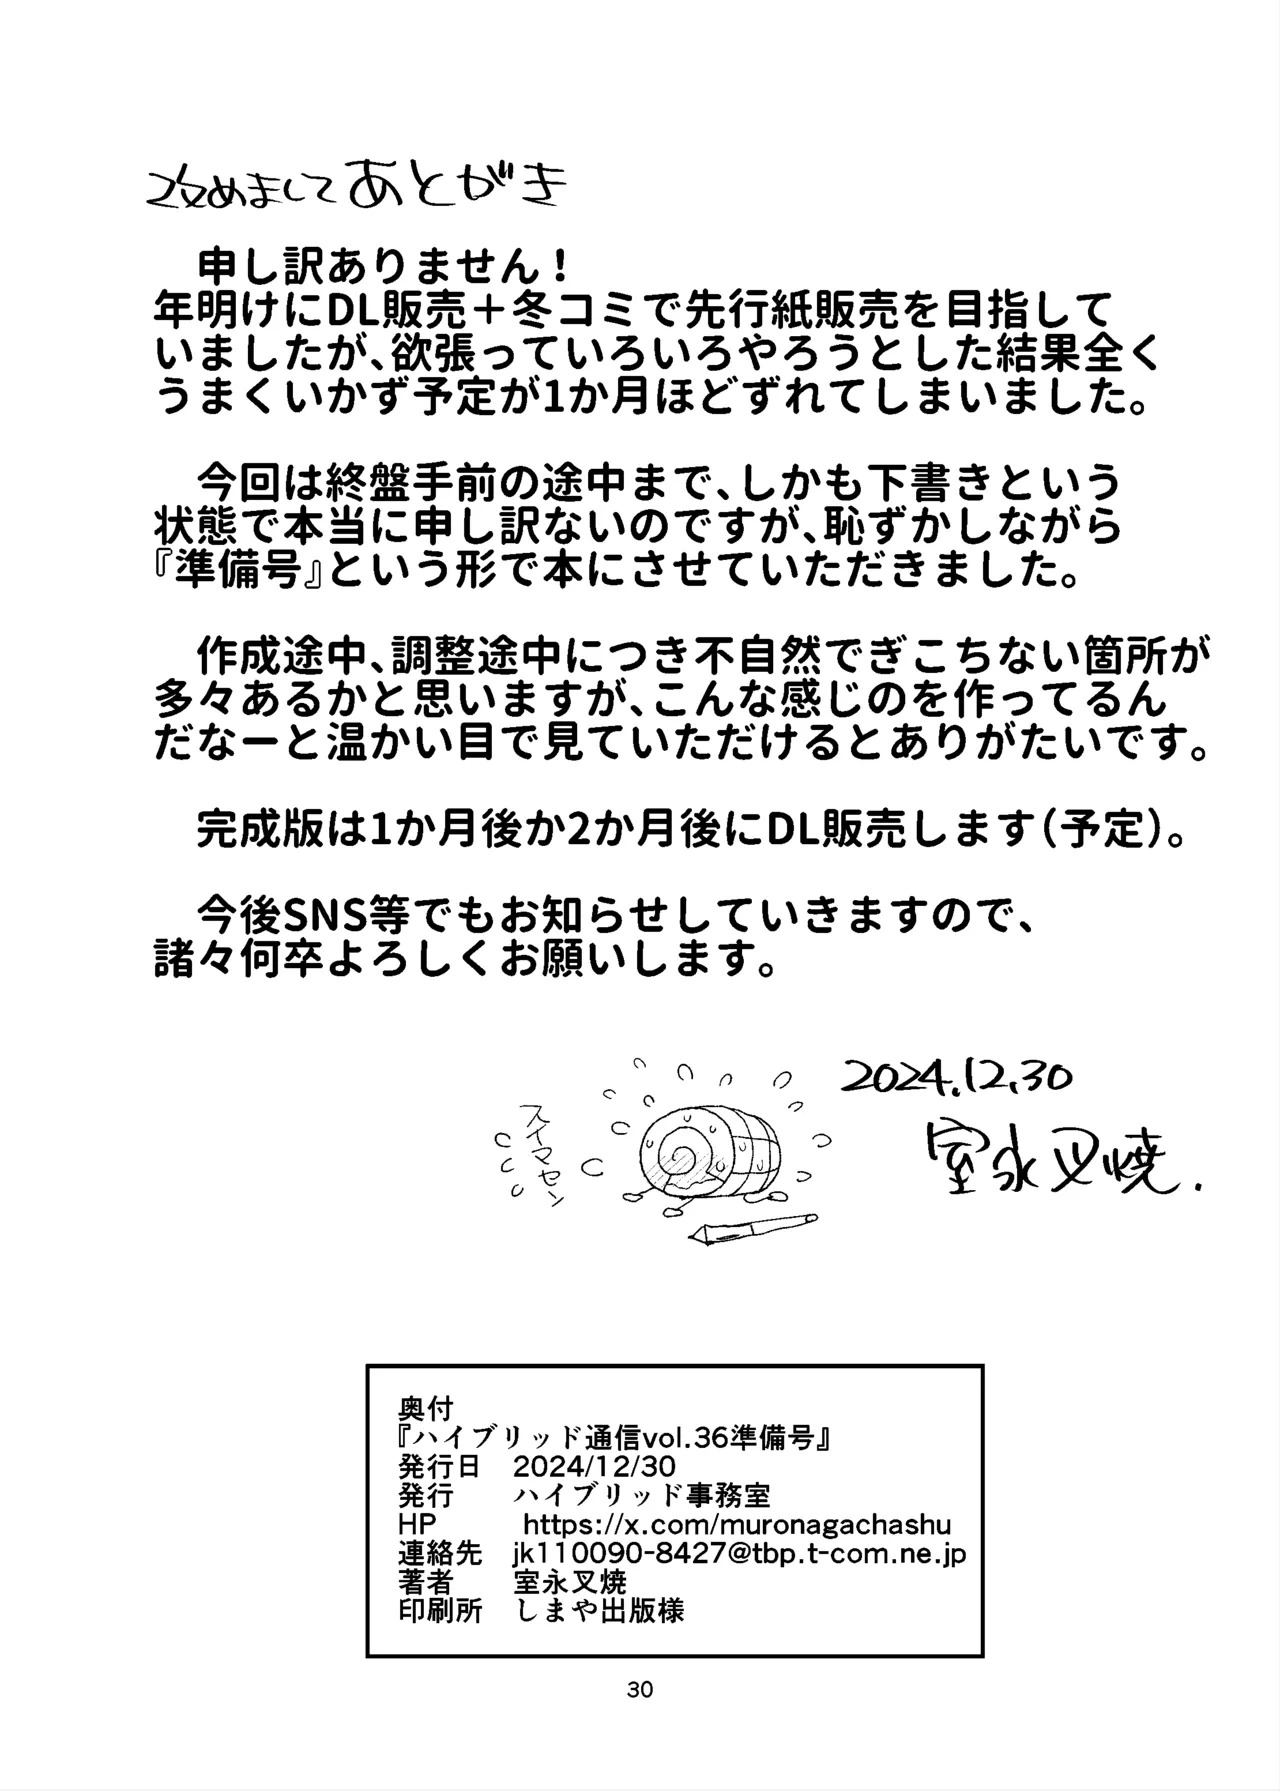 改めましてあとがき
申し訳ありません！
年明けにDL販売＋冬コミで先行紙販売を目指して
いましたが、欲張っていろいろやろうとした結果全く
うまくいかず予定が1か月ほどずれてしまいました。
今回は終盤手前の途中まで、しかも下書きという
状態で本当に申し訳ないのですが、恥ずかしながら
『準備号』という形で本にさせていただきました。
作成途中、調整途中につき不自然でぎこちない箇所が
多々あるかと思いますが、こんな感じのを作ってるん
だなーと温かい目で見ていただけるとありがたいです。
完成版は1か月後か2か月後にDL販売します（予定）。
今後SNS等でもお知らせしていきますので、
諸々何卒よろしくお願いします。
スイマセン
2024.12.30
室永叉焼.
奥付
『ハイブリッド通信vol.36準備号』
発行日 2024/12/30
発行 ハイブリッド事務室
HP https://x.com/muronagachashu
連絡先 jk110090-8427@tbp.t-com.ne.jp
著者 室永叉焼
印刷所 しまや出版様
30